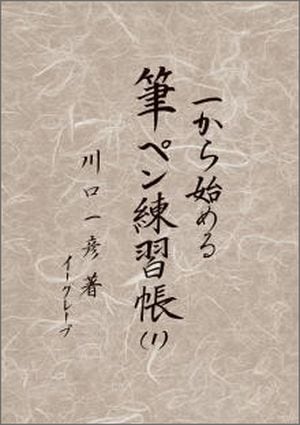 一から始める
筆ペン練習帳(1)
川口一彦著
イーグレープ